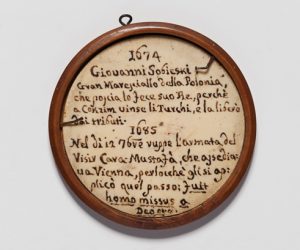 1674
Giovanni Sobieski
Gran Maresciallo della Polonia
che poscia lo fece suo Re, perchè
a Coczim vinse li Turchi, e la liberò
dai tributi.
1685
Nel dì 12 7bre ruppe l'armata del
Visir Cara Mustafà, che assedia=
va Vienna, perlocchè gli si ap=
plicò quel passo: fuit
homo missus a
Deo